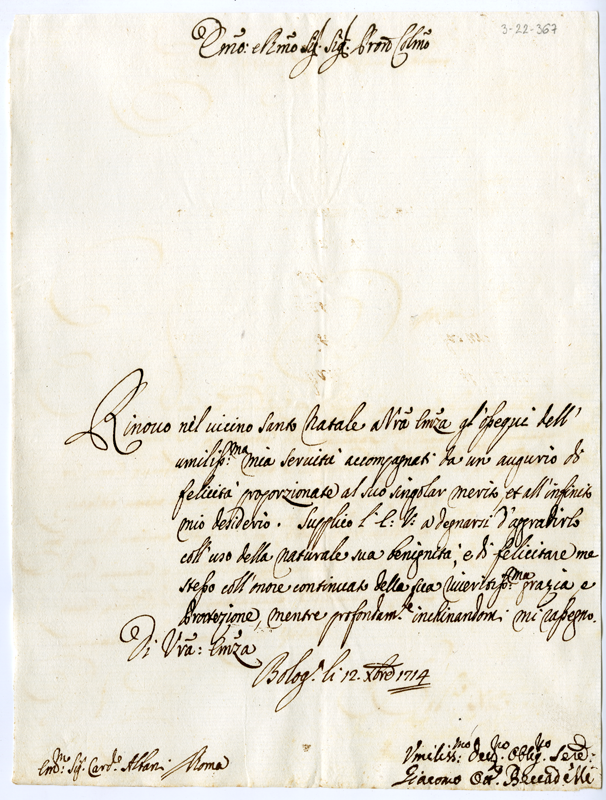 3-22-367
Emo: e Rmo Sig.r Sig.r Pron Colmo
Rinovo nel vicino Santo Natale a Vrã Emza gl'ossequi dell'
umiliss:ma mia servitù accompagnati da un augurio di
felicità proporzionate al suo singolar merito, et all'infinito
mio desiderio. Supplico l'E: V: a degnarsi d'aggradirlo
coll'uso della naturale sua benignità, e di felicitare me
stesso coll'onore continuato della sua riveritiss:ma grazia e
Protezione, mentre profondam.te inchinandomi mi rassegno.
Di Vrã: Emza
Bolog.a li 12. Xbre 1714
Em.mo Sig. Card.le Albani Roma
Umiliss:mo Dev.mo Oblig.mo Serv:
Giacomo Beccadelli